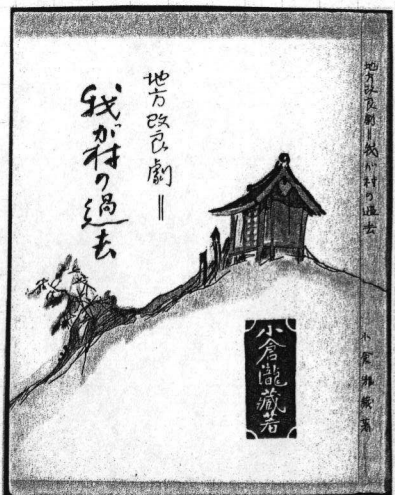 地方改良劇＝我が村の過去
小倉瀧蔵著
地方改良劇＝
我が村の過去
小倉瀧藏著